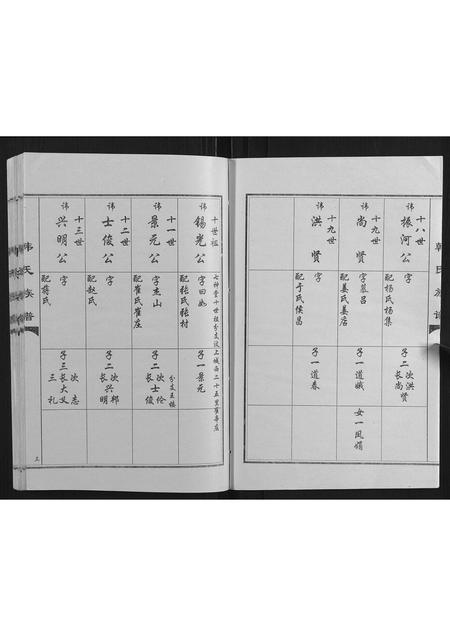 韩氏族谱
十八世
讳
振河公
字
配杨氏杨集
子二
长尚贤
次洪贤
十九世
讳
尚贤
字慕吕
配姜氏姜店
子一道臧
女一凤娟
十九世
讳
洪贤
字
配于氏侯昌
子一道春
七神堂十世祖分支汶上城西二十五里
十世祖
讳
锡光公
字曰如
配张氏张村
子一景元
十一世
讳
景元公
字奎山
配崔氏崔庄
分支五楼
子二
长士俊
次士伦
十二世
讳
士俊公
字
配赵氏
子二
长兴明
次兴邦
十三世
讳
兴明公
字
配蒋氏
子三
长大义
次志
三礼
韩氏族谱
三